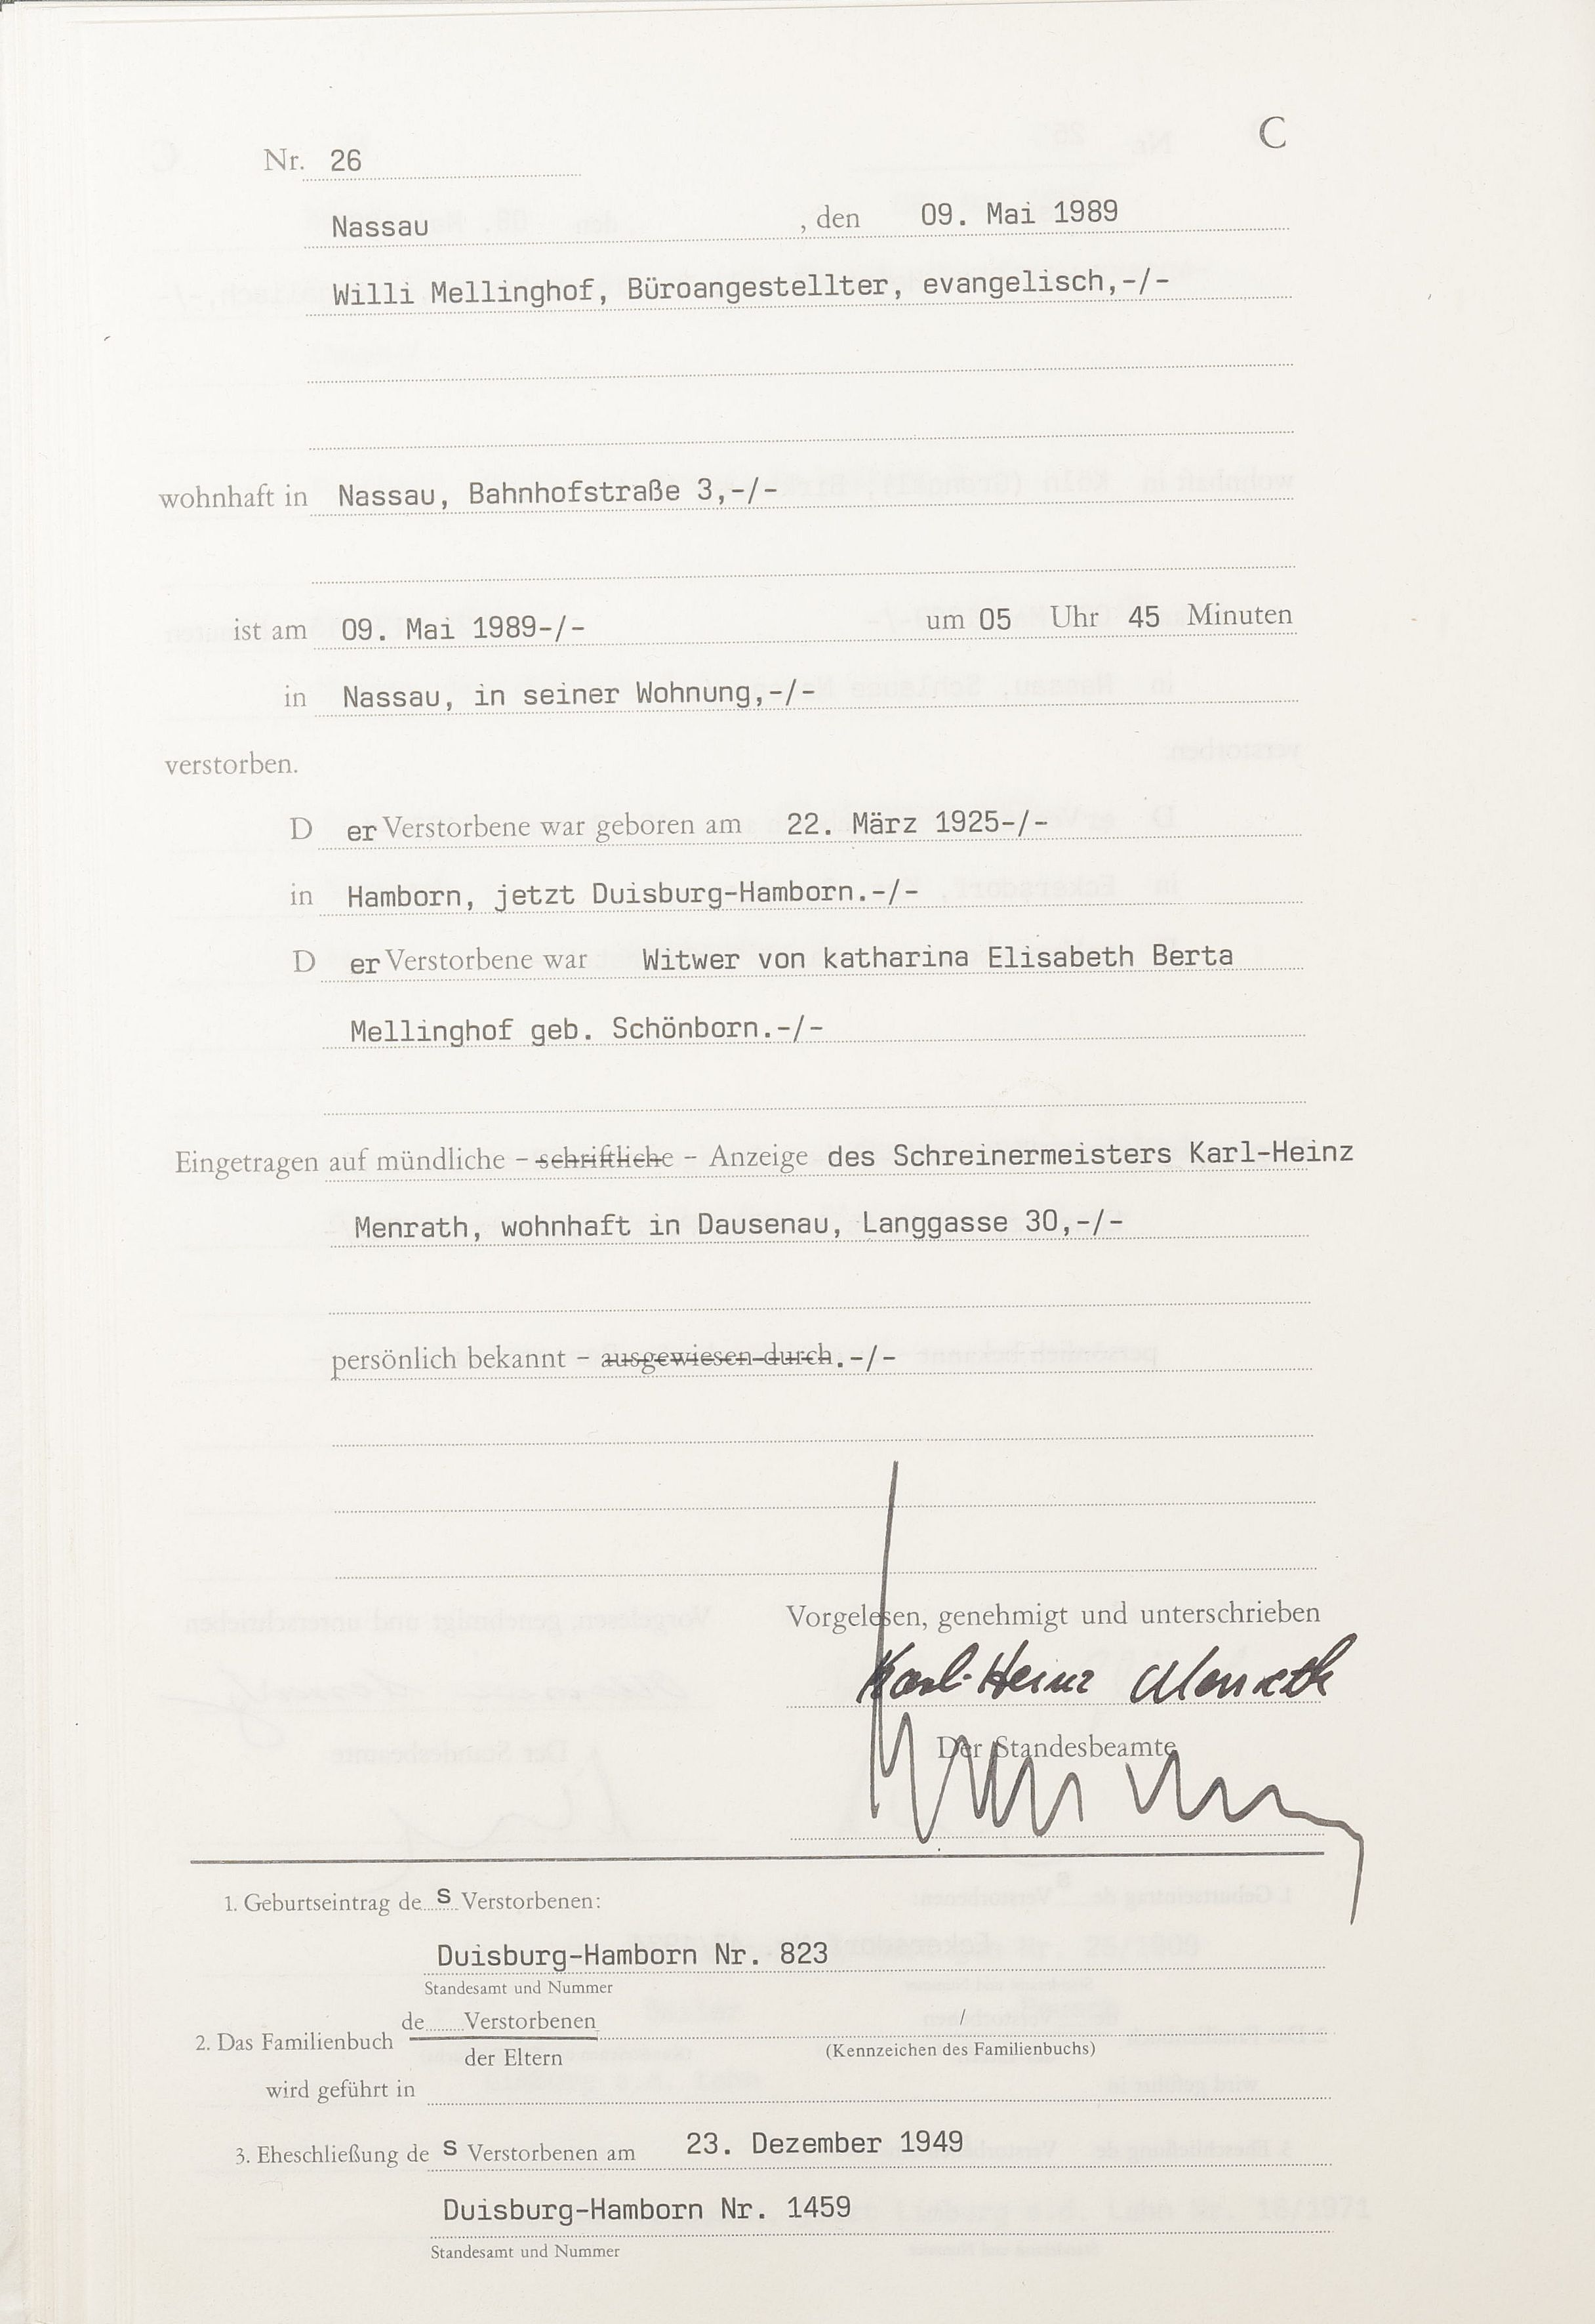 C
Nr. 26
Nassau , den 09. Mai 1989
Willi Mellinghof, Büroangestellter, evangelisch,-/-
wohnhaft in Nassau, Bahnhofstraße 3,-/-
ist am 09. Mai 1989-/- um 05 Uhr 45 Minuten
in Nassau, in seiner Wohnung,-/-
verstorben.
D er Verstorbene war geboren am 22. März 1925-/-
in Hamborn, jetzt Duisburg-Hamborn.-/-
D er Verstorbene war Witwer von katharina Elisabeth Berta
Mellinghof geb. Schönborn.-/-
Eingetragen auf mündliche – schriftliche – Anzeige des Schreinermeisters Karl-Heinz
Menrath, wohnhaft in Dausenau, Langgasse 30,-/-
persönlich bekannt – ausgewiesen durch.-/-
Vorgelesen, genehmigt und unterschrieben
Karl-Heinz Menrath
Der Standesbeamte
1. Geburtseintrag de s Verstorbenen:
Duisburg-Hamborn Nr. 823
Standesamt und Nummer
de Verstorbenen /
2. Das Familienbuch
der Eltern (Kennzeichen des Familienbuchs)
wird geführt in
3. Eheschließung de s Verstorbenen am 23. Dezember 1949
Duisburg-Hamborn Nr. 1459
Standesamt und Nummer